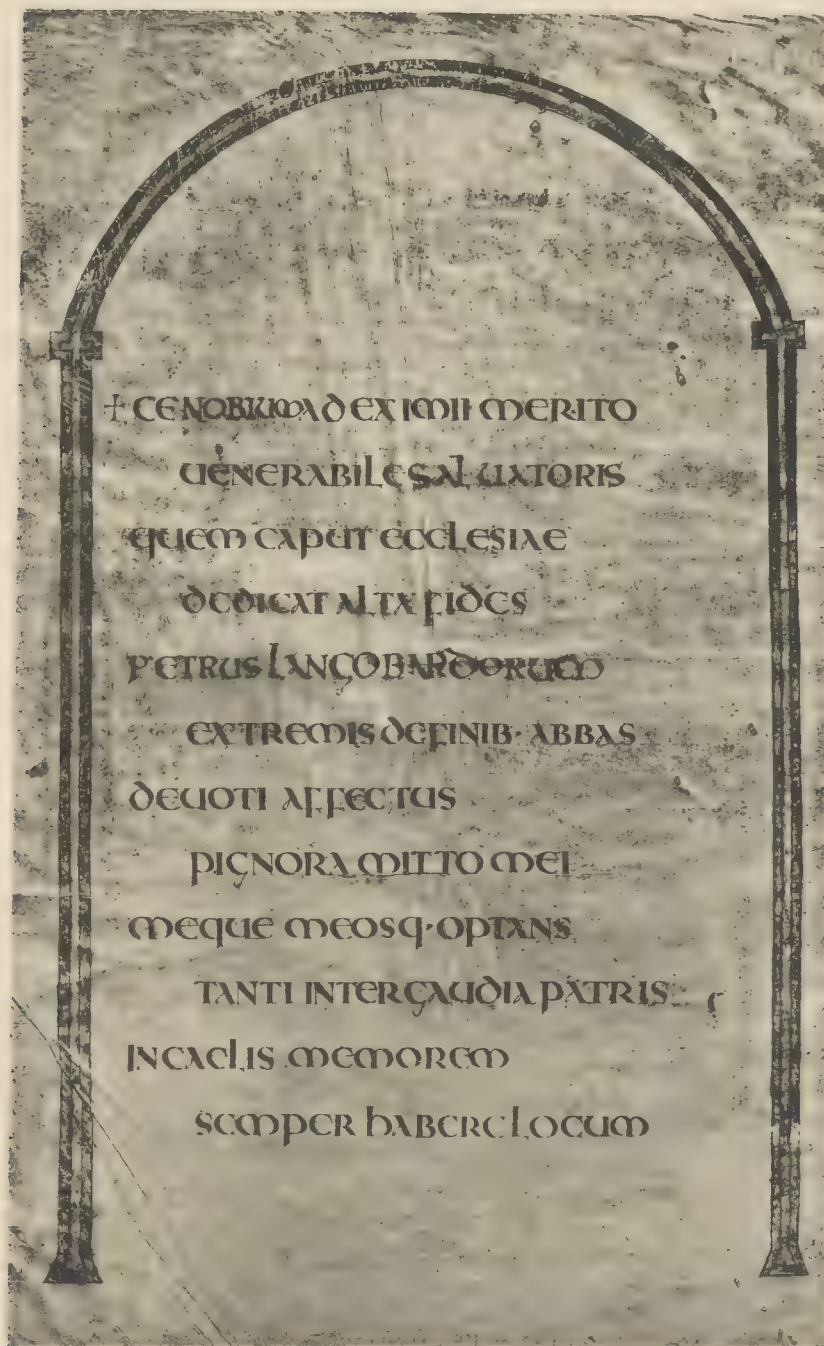 + CENOBIUM AD EXIMII MERITO
UENERABILE SALUATORIS
QUEM CAPUT ECCLESIAE
DEDICAT ALTA FIDES
PETRUS LANGOBARDORUM
EXTREMIS DE FINIB· ABBAS
DEUOTI AFFECTUS
PIGNORA MITTO MEI
MEQUE MEOSQ· OPTANS
TANTI INTER GAUDIA PATRIS
IN CAELIS MEMOREM
SEMPER HABERE LOCUM